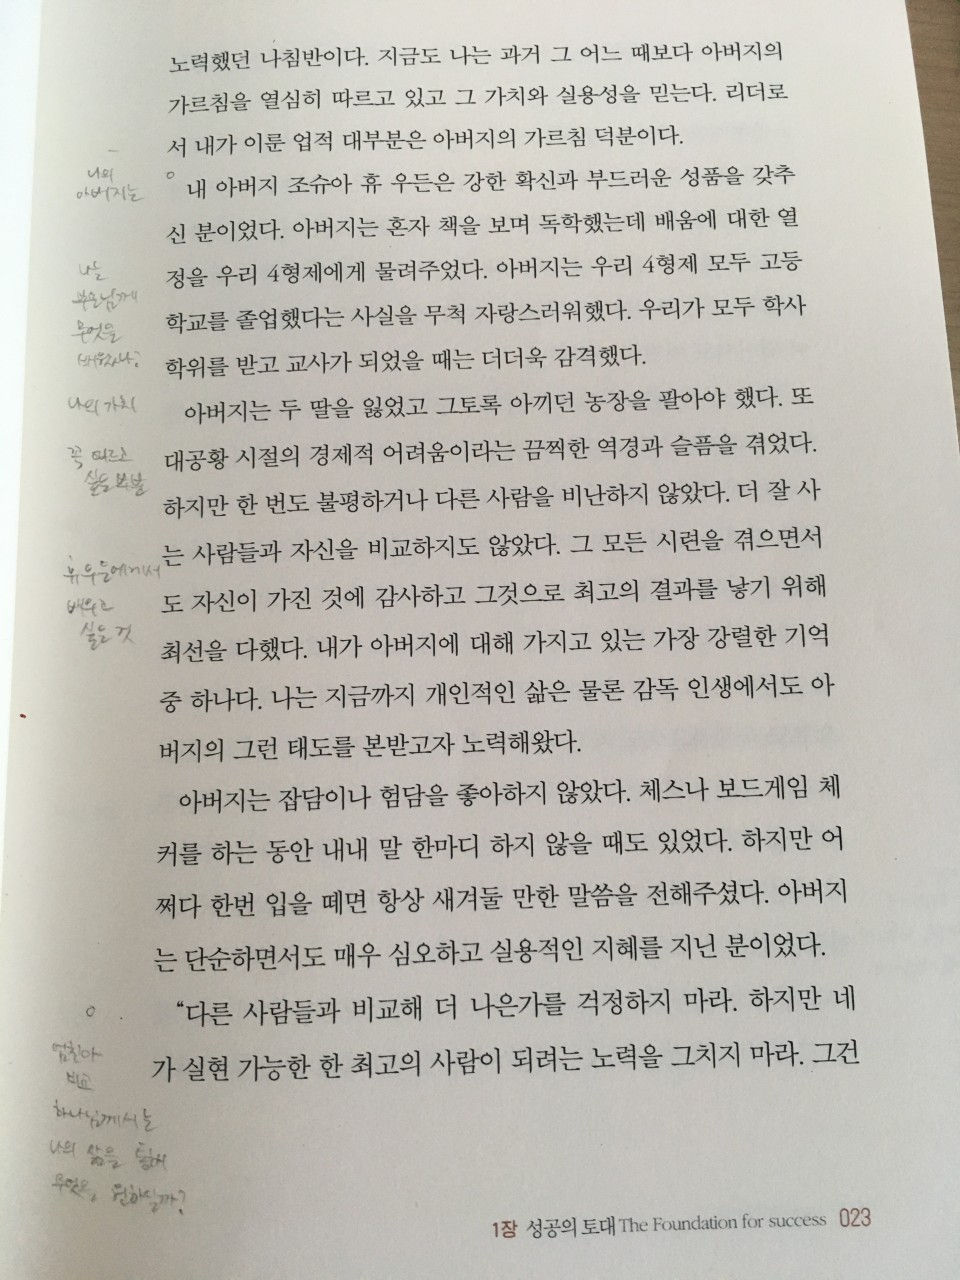 노력했던 나침반이다. 지금도 나는 과거 그 어느 때보다 아버지의
가르침을 열심히 따르고 있고 그 가치와 실용성을 믿는다. 리더로
서 내가 이룬 업적 대부분은 아버지의 가르침 덕분이다.
내 아버지 조슈아 휴 우든은 강한 확신과 부드러운 성품을 갖추
신 분이었다. 아버지는 혼자 책을 보며 독학했는데 배움에 대한 열
정을 우리 4형제에게 물려주었다. 아버지는 우리 4형제 모두 고등
학교를 졸업했다는 사실을 무척 자랑스러워했다. 우리가 모두 학사
학위를 받고 교사가 되었을 때는 더더욱 감격했다.
아버지는 두 딸을 잃었고 그토록 아끼던 농장을 팔아야 했다. 또
대공황 시절의 경제적 어려움이라는 끔찍한 역경과 슬픔을 겪었다.
하지만 한 번도 불평하거나 다른 사람을 비난하지 않았다. 더 잘 사
는 사람들과 자신을 비교하지도 않았다. 그 모든 시련을 겪으면서
도 자신이 가진 것에 감사하고 그것으로 최고의 결과를 낳기 위해
최선을 다했다. 내가 아버지에 대해 가지고 있는 가장 강렬한 기억
중 하나다. 나는 지금까지 개인적인 삶은 물론 감독 인생에서도 아
버지의 그런 태도를 본받고자 노력해왔다.
아버지는 잡담이나 험담을 좋아하지 않았다. 체스나 보드게임 체
커를 하는 동안 내내 말 한마디 하지 않을 때도 있었다. 하지만 어
쩌다 한번 입을 떼면 항상 새겨둘 만한 말씀을 전해주셨다. 아버지
는 단순하면서도 매우 심오하고 실용적인 지혜를 지닌 분이었다.
“다른 사람들과 비교해 더 나은가를 걱정하지 마라. 하지만 네
가 실현 가능한 한 최고의 사람이 되려는 노력을 그치지 마라. 그건
나의
아버지는
나는
부모님께
무엇을
배웠나?
나의 가치
꼭 따르고
싶은
휴 우든에게서
배우고
싶은 것
엄친아
비교
하나님께서는
나의 삶을 통해
무엇을 원하실까?
1장 성공의 토대 The Foundation for success 023